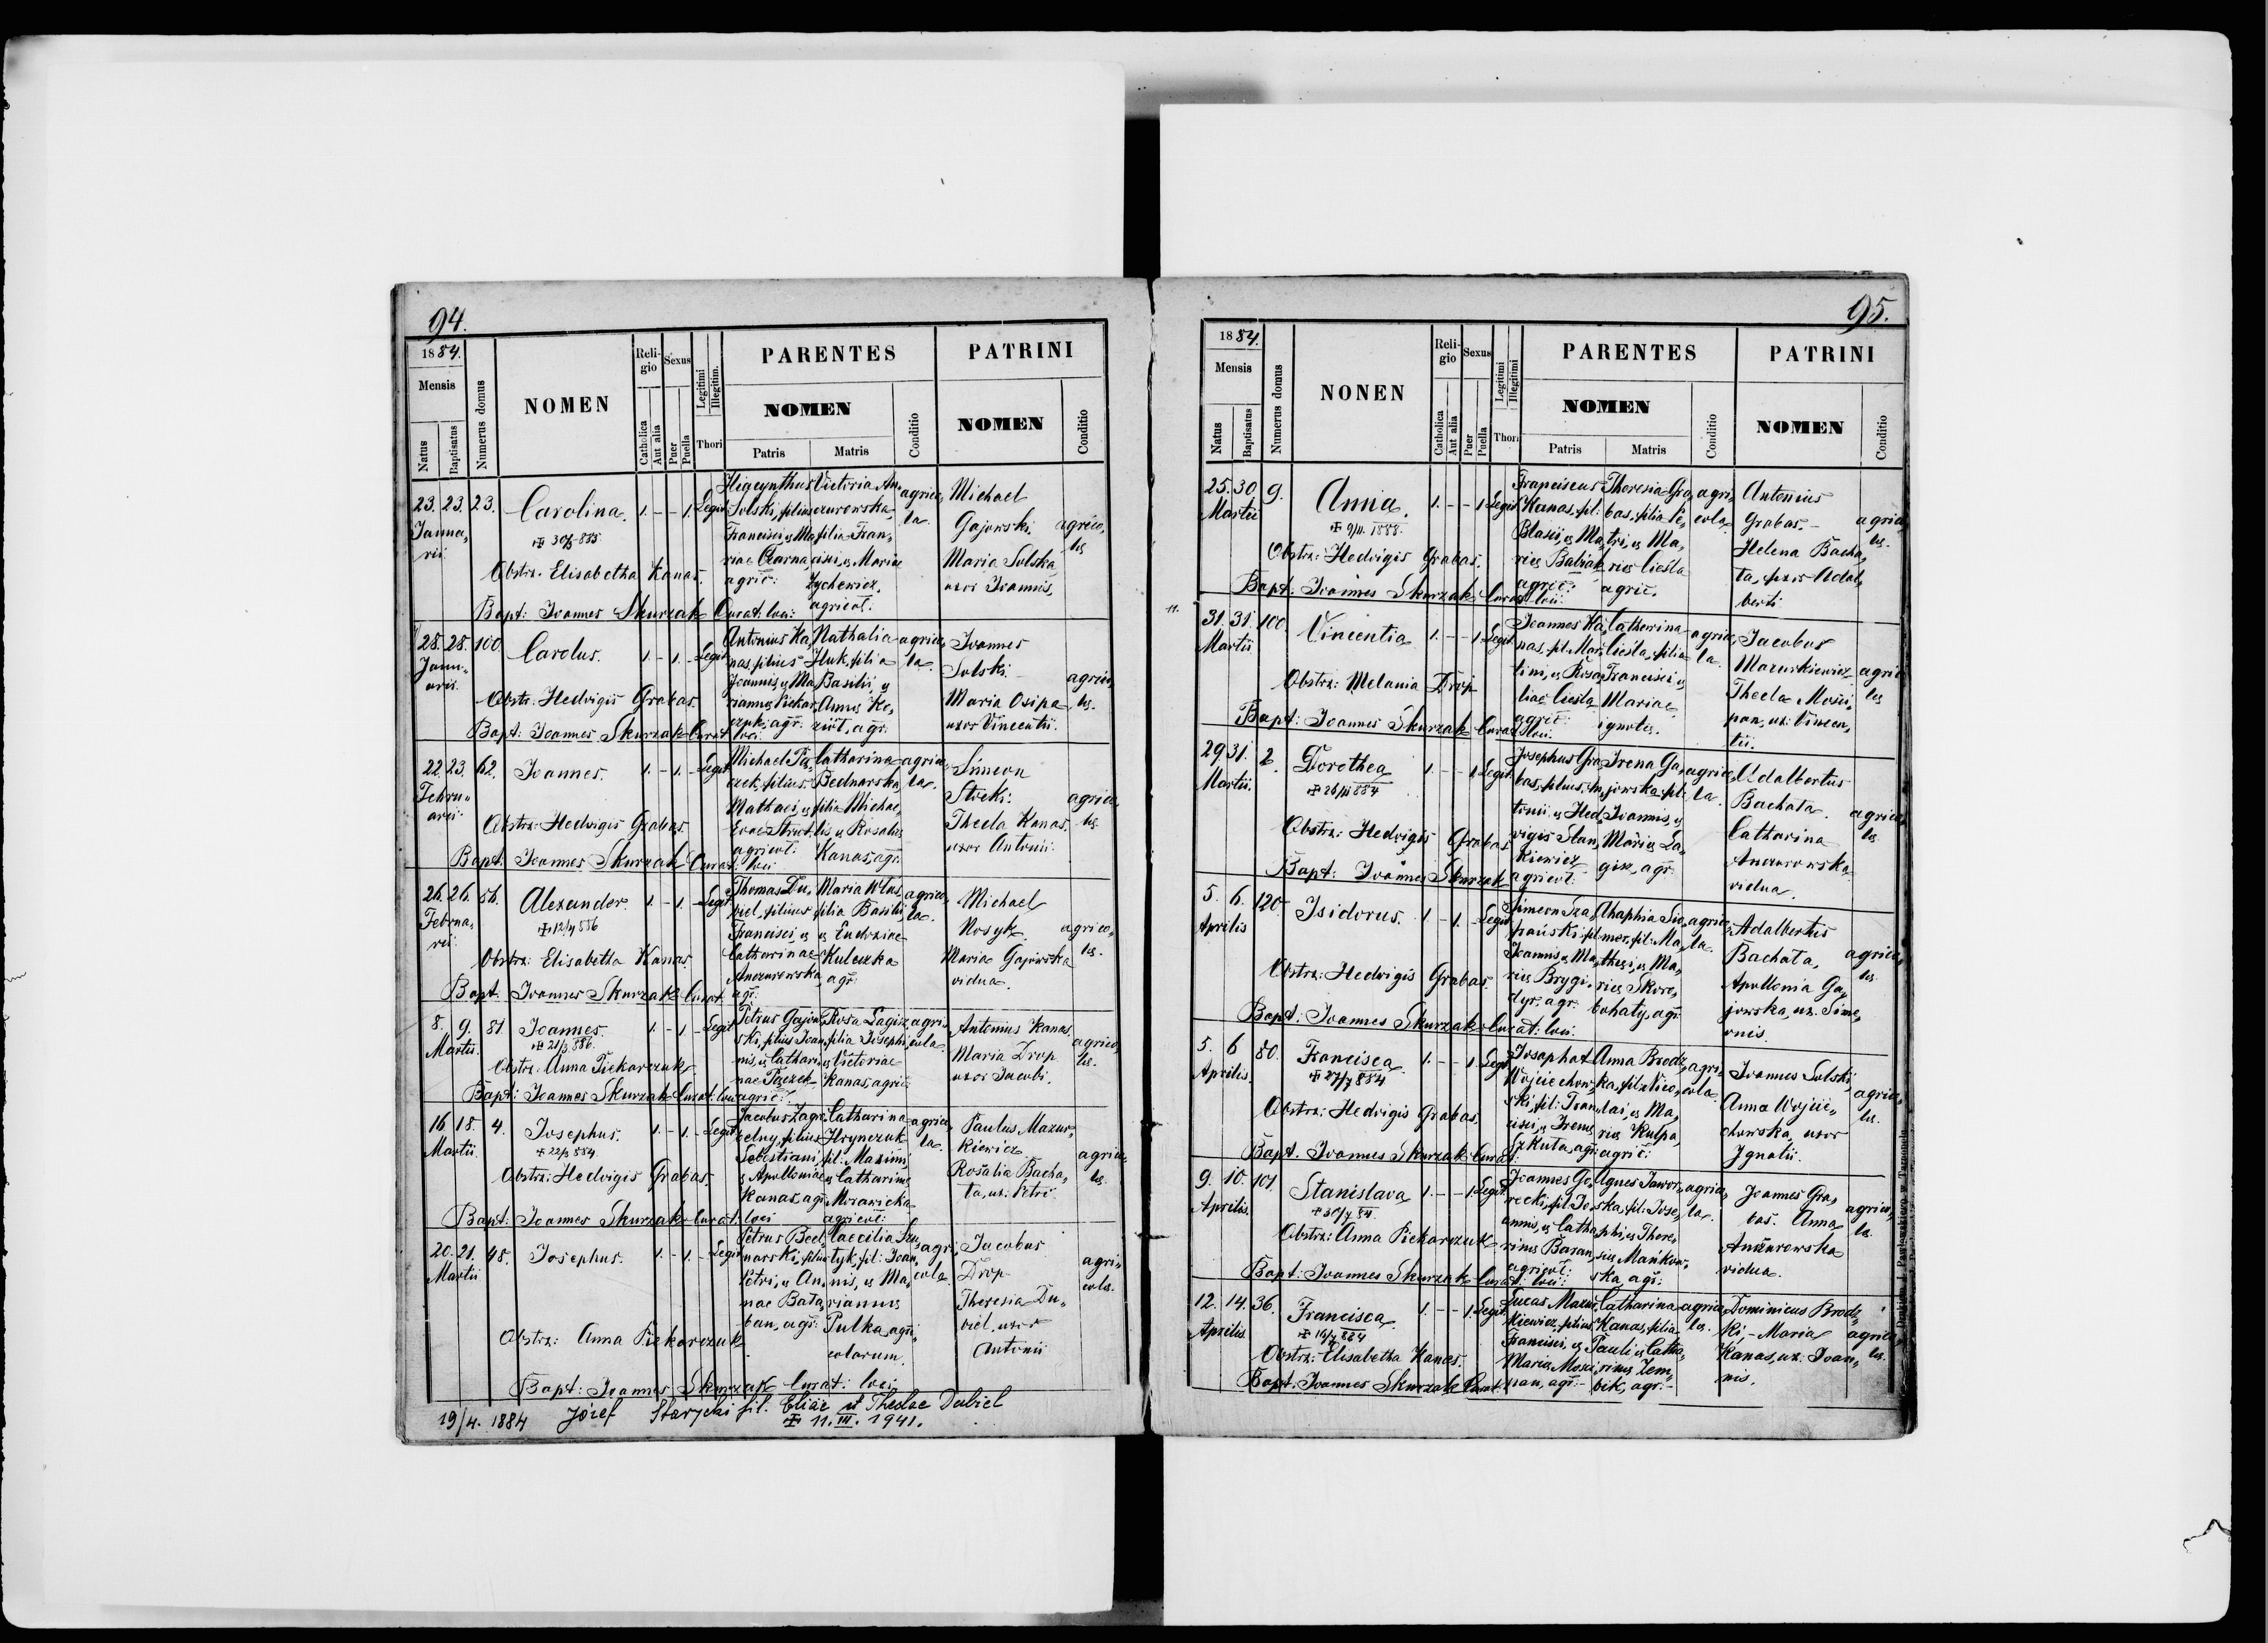 94.
1884.
Mensis
Natus
Baptisatus
Numerus domus
NOMEN
Religio
Catholica
Aut alia
Sexus
Puer
Puella
Legitimi
Illegitim.
Thori
PARENTES
NOMEN
Patris
Matris
Conditio
PATRINI
NOMEN
Conditio
23. 23. 23.
Januarii
Carolina.
1. - - 1. Legit.
Obstr. Elisabetha Kanas.
Bapt: Joannes Skurzak Curat. loci:
Higcynthus
Solski, filius
Francisci, et Ma
riae Czarna,
agric:
Victoria An,
czurowska
filia Fran,
cisci, et Mariae
Zychewicz,
agricol:
agrico,
la.
Michael
Gajowski.
Maria Solska
uxor Joannis,
agrico,
lae
28. 28. 100.
Janu,
arii.
Carolus.
1. - 1. - Legit.
Obstr: Hedvigis Grabas.
Bapt: Joannes Skurzak Curat loci
Antonius Ka,
nas, filius
Joannis, et Ma
riannae Piekar,
czuk: agr:
Nathalia
Huk, filia
Basilii, et
Annae Ko,
agr:
agrico,
la.
Joannes
Solski.
Maria Osipa
uxor Vincentii.
agrico,
lae.
22. 23. 62.
Febru,
arii.
Joannes.
1. - 1. - Legit
Obstr: Hedvigis Grabas
Bapt. Joannes Skurzak Curat. loci
Michael Pa,
czek, filius
Mathaei, et
Evae
agricol:
Catharina
Bednarska
filia Michae,
lis, et Rosaliae
Kanas, agr:
agrico,
la.
Simeon
Thecla Kanas,
uxor Antonii
agrico,
lae.
26. 26. 56.
Februa,
rii.
Alexander.
1. - 1. - Legit
Obstr: Elisabetha Kanas
Bapt. Joannes Skurzak Curat
Thomas Du,
biel, filius
Francisci, et
Catharinae
Anczurowska,
agr:
Maria
filia Basilii
et Eudoxiae
Kuleczka
agr:
agrico,
la.
Michael
Nosyk
Maria Gajowska
vidua.
agrico,
lae.
8. 9. 81
Martii.
Joannes.
1. - 1 - Legit
Obstr. Anna Piekarczuk
Bapt: Joannes Skurzak Curat: loci
Petrus Gajow,
ski, filius Joan,
nis, et Cathari,
nae Paczek
agric:
Rosa Lagisz
filia Josephi,
et Victoriae
Kanas, agric
agri,
cola.
Antonius Kanas
Maria Drop
uxor Jacobi.
agrico,
lae.
16 18. 4.
Martii.
Josephus.
1. - 1. - Legit
Obstr: Hedvigis Grabas.
Bapt. Joannes Skurzak Curat: loci
Jacobus Zagr,
celny, filius
Sebestiani,
et Apolloniae
Kanas, agr:
Catharina
Hrynczuk
fil: Maximi,
et Catharinae
agricol:
agrico,
la.
Paulus Mazur,
kiewicz
Rosalia Bacha,
ta, ux: Petri
agrico,
lae.
20. 21. 48.
Martii
Josephus.
1. - 1. - Legit
Obstr: Anna Piekarczuk
Bapt: Joannes Skurzak Curat: loci
Petrus Bed,
narski, filius
Petri, et An,
nae Bata,
ban, agr:
Caecilia Szu,
tyk, fil: Joan,
nis, et Ma,
riannae
Pulka, agri,
colarum.
agri,
cola
Jacobus
Drop
Theresia Du,
biel, uxor
Antonii
agri,
colae.
19/4. 1884 Józef Starycki fil. Eliae et Theclae Dubiel
11. III. 1941.
95.
1884.
Mensis
Natus
Baptisatus
Numerus domus
NONEN
Religio
Catholica
Aut alia
Sexus
Puer
Puella
Legitimi
Illegitimi
Thori
PARENTES
NOMEN
Patris
Matris
Conditio
PATRINI
NOMEN
Conditio
25. 30 9.
Martii
Anna.
9/11. 1888.
1. - - 1 Legit
Obstr: Hedvigis Grabas.
Bapt. Joannes Skurzak Curat loci.
Franciscus
Kanas, fil:
Blasii, et Ma,
riae Babiak
agric:
Theresia Gra,
bas, filia Pe,
tri, et Ma,
riae Cieśla
agric.
agri,
cola
Antonius
Grabas.-
Helena Bacha,
ta, uxor Adal,
berti
agrico,
lae.
11.
31. 31. 100.
Martii
Vincentia
1. - - 1 Legit
Obstr: Melania Drop
Bapt: Joannes Skurzak Curat loci.
Joannes Ka,
nas, fil. Mar,
tini, et Rosa,
liae Cieśla
agric:
Catherina
Cieśla, filia
Francisci, et
Mariae
ignotae.
agrico,
la.
Jacobus
Mazurkiewicz
Thecla Mosci,
pan, ux: Vincen,
tii.
agrico
lae
29 31. 2.
Martii.
Dorothea
1. - - 1 Legit.
Obstr: Hedvigis Grabas
Bapt: Joannes Skurzak
Josephus Gra,
bas, filius An,
tonii, et Hed,
vigis Stan,
kiewicz
agricol:
Irena Ga,
jowska, fil:
Joannis, et
Mariae La,
gisz, agr:
agrico,
la.
Adalbertus
Bachata.
Catharina
Anczurowska
vidua.
agrico,
lae.
5. 6. 120.
Aprilis
Isidorus.
1. - 1. - Legit
Obstr: Hedvigis Grabas
Bapt. Joannes Skurzak Curat: loci.
Simeon Sza,
pański, fil
Joannis, et Ma,
riae Brygi,
dyr, agr:
Ahaphia
fil: Ma,
thaei, et Ma,
riae Skoro,
bohaty, agr:
agrico,
la.
Adalbertus
Bachata,
Apollonia Ga,
jowska, ux. Sime,
onis.
agrico,
lae.
5. 6 80.
Aprilis.
Francisca
27/7 884
1. - - 1 Legit
Obstr: Hedvigis Grabas.
Bapt. Joannes Skurzak Curat:
Josaphat
Wojciechow,
ski, fil: Fran,
cisci, et Irenae
Szkuta, agr:
Anna Brodz,
ka, filia Nico,
lai, et Ma,
riae Kulpa,
agric:
agri,
cola.
Joannes Solski,
Anna Wojcie,
chowska, uxor
Ignatii.
agrico,
lae.
9. 10. 101.
Aprilis.
Stanislava
1. - - 1 Legit
Obstr: Anna Piekarczuk
Bapt: Joannes Skurzak Curat: loci:
Joannes Go,
recki, fil: Jo,
annis, et Catha,
rinae Baran,
agricol:
Agnes Jawor,
ska, fil: Jose,
phi, et There,
siae Mańkow,
ska, agr:
agrico,
la.
Joannes Gra,
bas. Anna
Anczurowska
vidua.
agrico,
lae.
12. 14. 36.
Aprilis
Francisca
1. - - 1. Legit.
Obstr: Elisabetha Kanas.
Bapt. Joannes Skurzak Curat.
Lucas Mazur,
kiewicz, filius
Francisci, et
Mariae Mosci,
pan, agr:-
Catharina
Kanas, filia
Pauli, et Catha,
rinae Zem,
bik, agr:-
agrico
la.
Dominicus Brodz,
ki,- Maria
Kanas, ux: Joan,
nis.
agrico,
lae.
Drukiem J. Pawłowskiego w Tarnopolu.